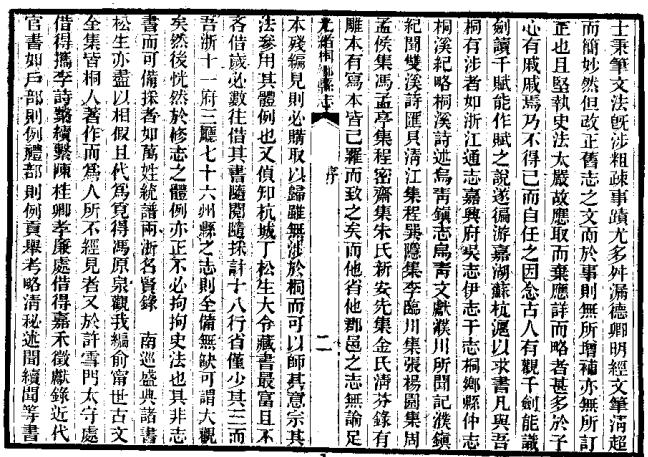 士秉筆文法旣涉粗疎事蹟尤多舛漏德卿明經文筆淸超
而簡妙然但改正舊志之文而於事則無所增補亦無所訂
正也且堅執史法太嚴故應取而棄應詳而略者甚多於子
心有戚戚焉乃不得已而自任之因念古人有觀千劍能識
劍讀千賦能作賦之說遂徧游嘉湖蘇杭滬以求書凡與吾
桐有涉者如浙江通志嘉興府吳志伊志于志桐鄉縣仲志
桐溪紀略桐溪詩述烏靑鎭志烏靑文獻濮川所聞記濮鎭
紀聞雙溪詩匯貝淸江集程巽隱集李臨川集張楊園集周
孟侯集馮孟亭集程密齋集朱氏新安先集金氏淸芬錄有
雕本有寫本皆已羅而致之矣而他省他郡邑之志無論足
光緖桐鄉縣志 序 二
本殘編見則必購取以歸雖無涉於桐而可以師其意宗其
法參用其體例也又偵知杭城丁松生大令藏書最富且不
吝借歲必數往借其書隨閱隨採計十八行省僅少其三而
吾浙十一府三廳七十六州縣之志則全備無缺可謂大觀
矣然後恍然於修志之體例亦正不必拘拘史法也其非志
書而可備採者如萬姓統譜兩浙名賢錄 南巡盛典諸書
松生亦盡以相假且代爲覓得馮原泉觀我編俞甯世古文
全集皆桐人著作而爲人所不經見者又於許雪門太守處
借得檇李詩繫續繫陳桂卿孝廉處借得嘉禾徵獻錄近代
官書如戶部則例禮部則例貢舉考略淸秘述聞續聞等書